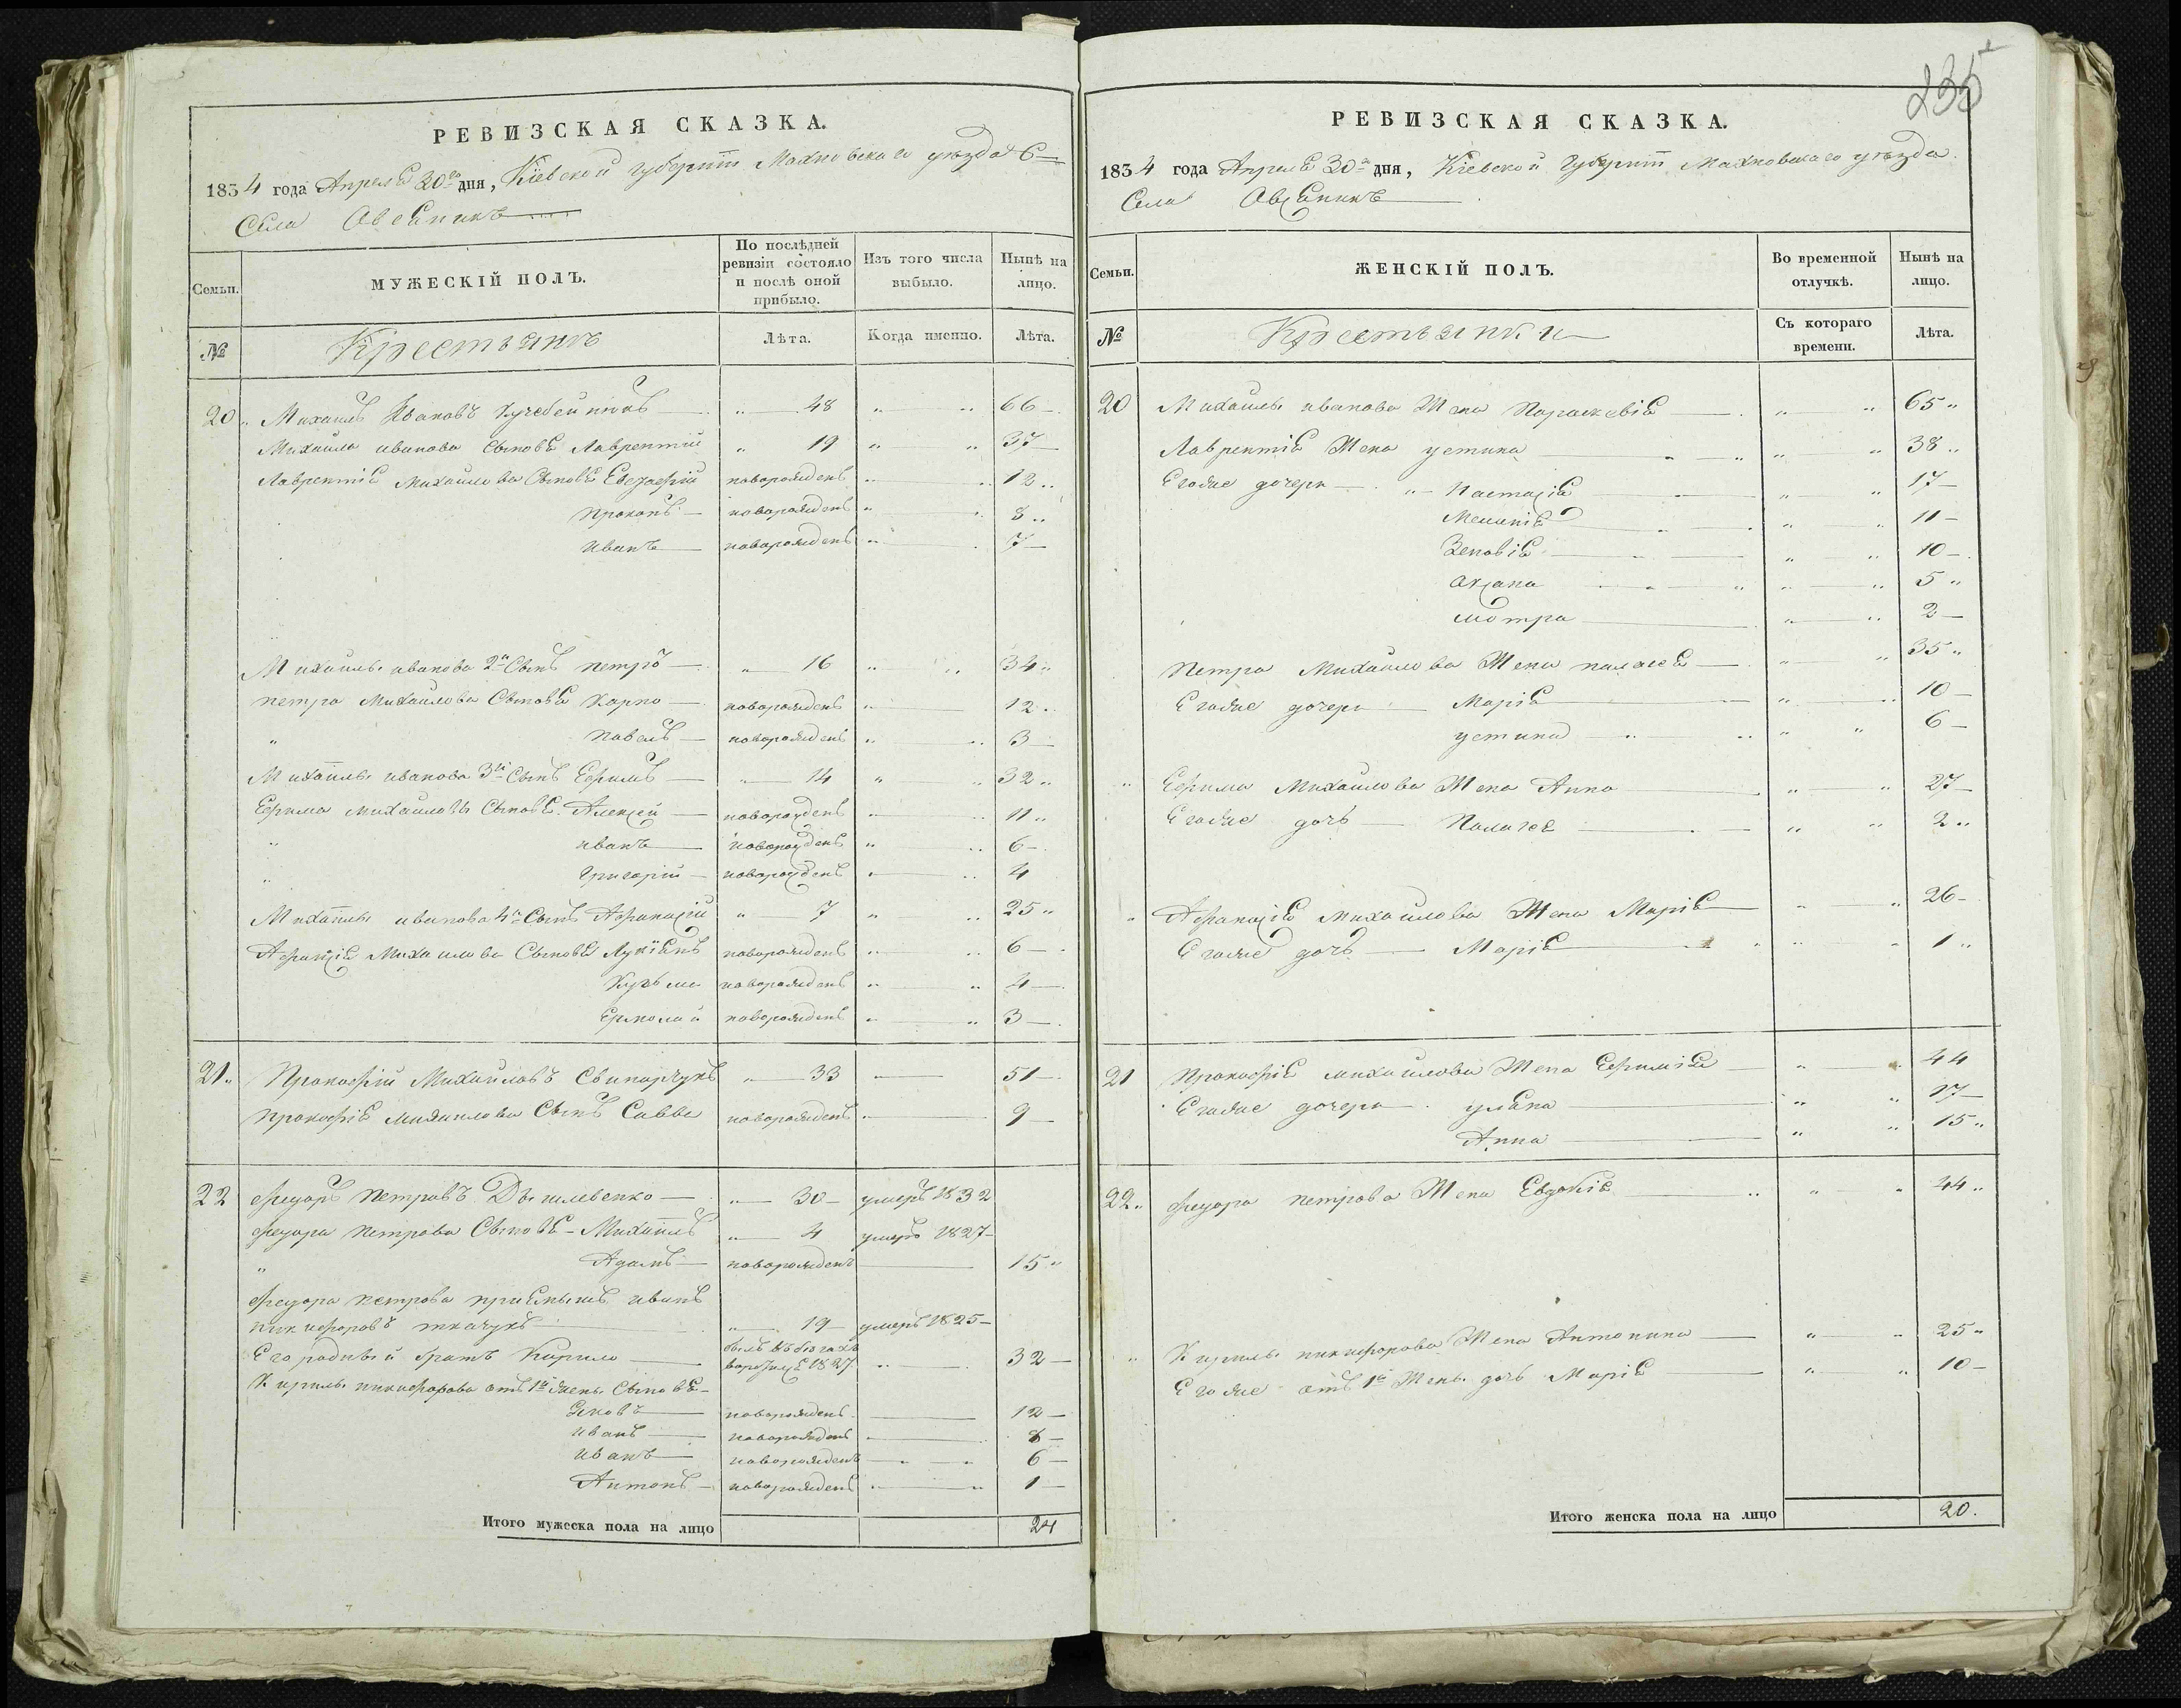 РЕВИЗСКАЯ СКАЗКА.
1834 года Апреля 30го дня, Кіевской Губерніи Махновскаго уѣзда
Села Овсяникъ
Семьи. МУЖЕСКІЙ ПОЛЪ. По послѣдней ревизіи состояло и послѣ оной прибыло. Изъ того числа выбыло. Нынѣ на лицо.
№ Крестьянъ Лѣта. Когда именно. Лѣта.
20 Михаилъ Ивановъ 48 66
Михайла иванова Сыновья Лаврентій 19 37
Лаврентія Михайлова Сыновья новорожденъ 12
Прокопъ новорожденъ 8
иванъ новорожденъ 7
Михайлы иванова 2й Сынъ петръ 16 34
петра Михайлова Сыновья Карпо новорожденъ 12
павелъ новорожденъ 3
Михайлы иванова 3й Сынъ Ефимъ 14 32
Ефима михайлова Сыновья Алексей новорожденъ 11
иванъ новорожденъ 6
Григорій новорожденъ 4
Михайлы иванова 4й Сынъ Афанасій 7 25
Афанасія Михайлова Сыновья Лукіянъ новорожденъ 6
Кузьма новорожденъ 4
Ермолай новорожденъ 3
21 Прокофій Михайловъ Свинарчукъ 33 51
Прокофія михайлова Сынъ Савва новорожденъ 9
22 Федоръ петровъ 30 умеръ 1832
Федора петрова Сыновья Михайлъ 4 умеръ 1827
Адамъ новорожденъ 15
Федора петрова приемышъ иванъ
никифоровъ ткачукъ 19 умеръ 1825
Его родный братъ Кирило былъ въ бегахъ 1827 32
Кирилы никифорова отъ 1й жены Сыновья
Яковъ новорожденъ 12
иванъ новорожденъ 8
иванъ новорожденъ 6
Антонъ новорожденъ 1
Итого мужеска пола на лицо 24
235
РЕВИЗСКАЯ СКАЗКА.
1834 года Апреля 30го дня, Кіевской Губерніи Махновскаго уѣзда
Села Овсяникъ
Семьи. ЖЕНСКІЙ ПОЛЪ. Во временной отлучкѣ. Нынѣ на лицо.
№ Крестьянки Съ котораго времени. Лѣта.
20 Михайлы иванова Жена Параскевія 65
Лаврентія Жена устина 38
Егоже дочери Настасія 17
Меланія 11
Зеновія 10
Оксана 5
мотра 2
Петра Михайлова Жена палагея 35
Егоже дочери Марія 10
устина 6
Ефима Михайлова Жена Анна 27
Егоже дочь Палагея 2
Афанасія михайлова Жена Марія 26
Егоже дочь Марія 1
21 Прокофія михайлова Жена Ефимія 44
Егоже дочери уляна 17
Анна 15
22 Федора петрова Жена Евдокія 44
Кирилы никифорова Жена Антонина 25
Егоже отъ 1й Жены дочь Марія 10
Итого женска пола на лицо 20.